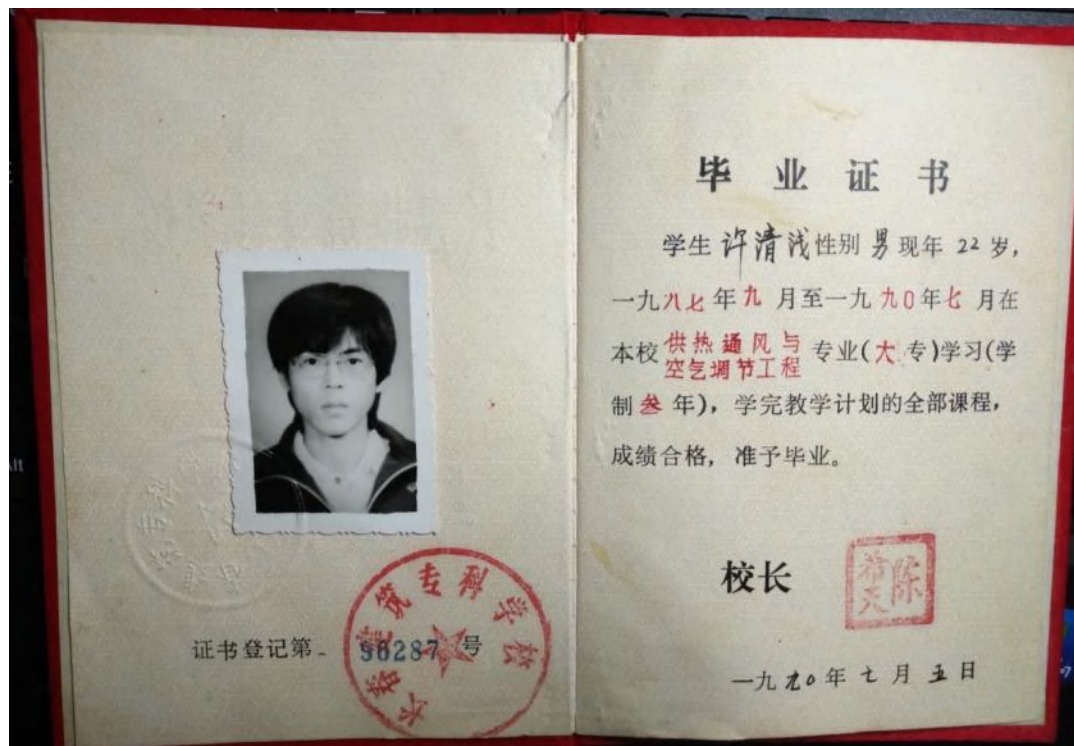 长春建筑专科学校
证书登记第 90287 号
毕业证书
学生许清浅性别男现年22岁,
一九八七年九月至一九九0年七月在
本校供热通风与空气调节工程专业(大专)学习(学
制叁年),学完教学计划的全部课程,
成绩合格,准予毕业。
校长
陈希天
一九九0年七月五日